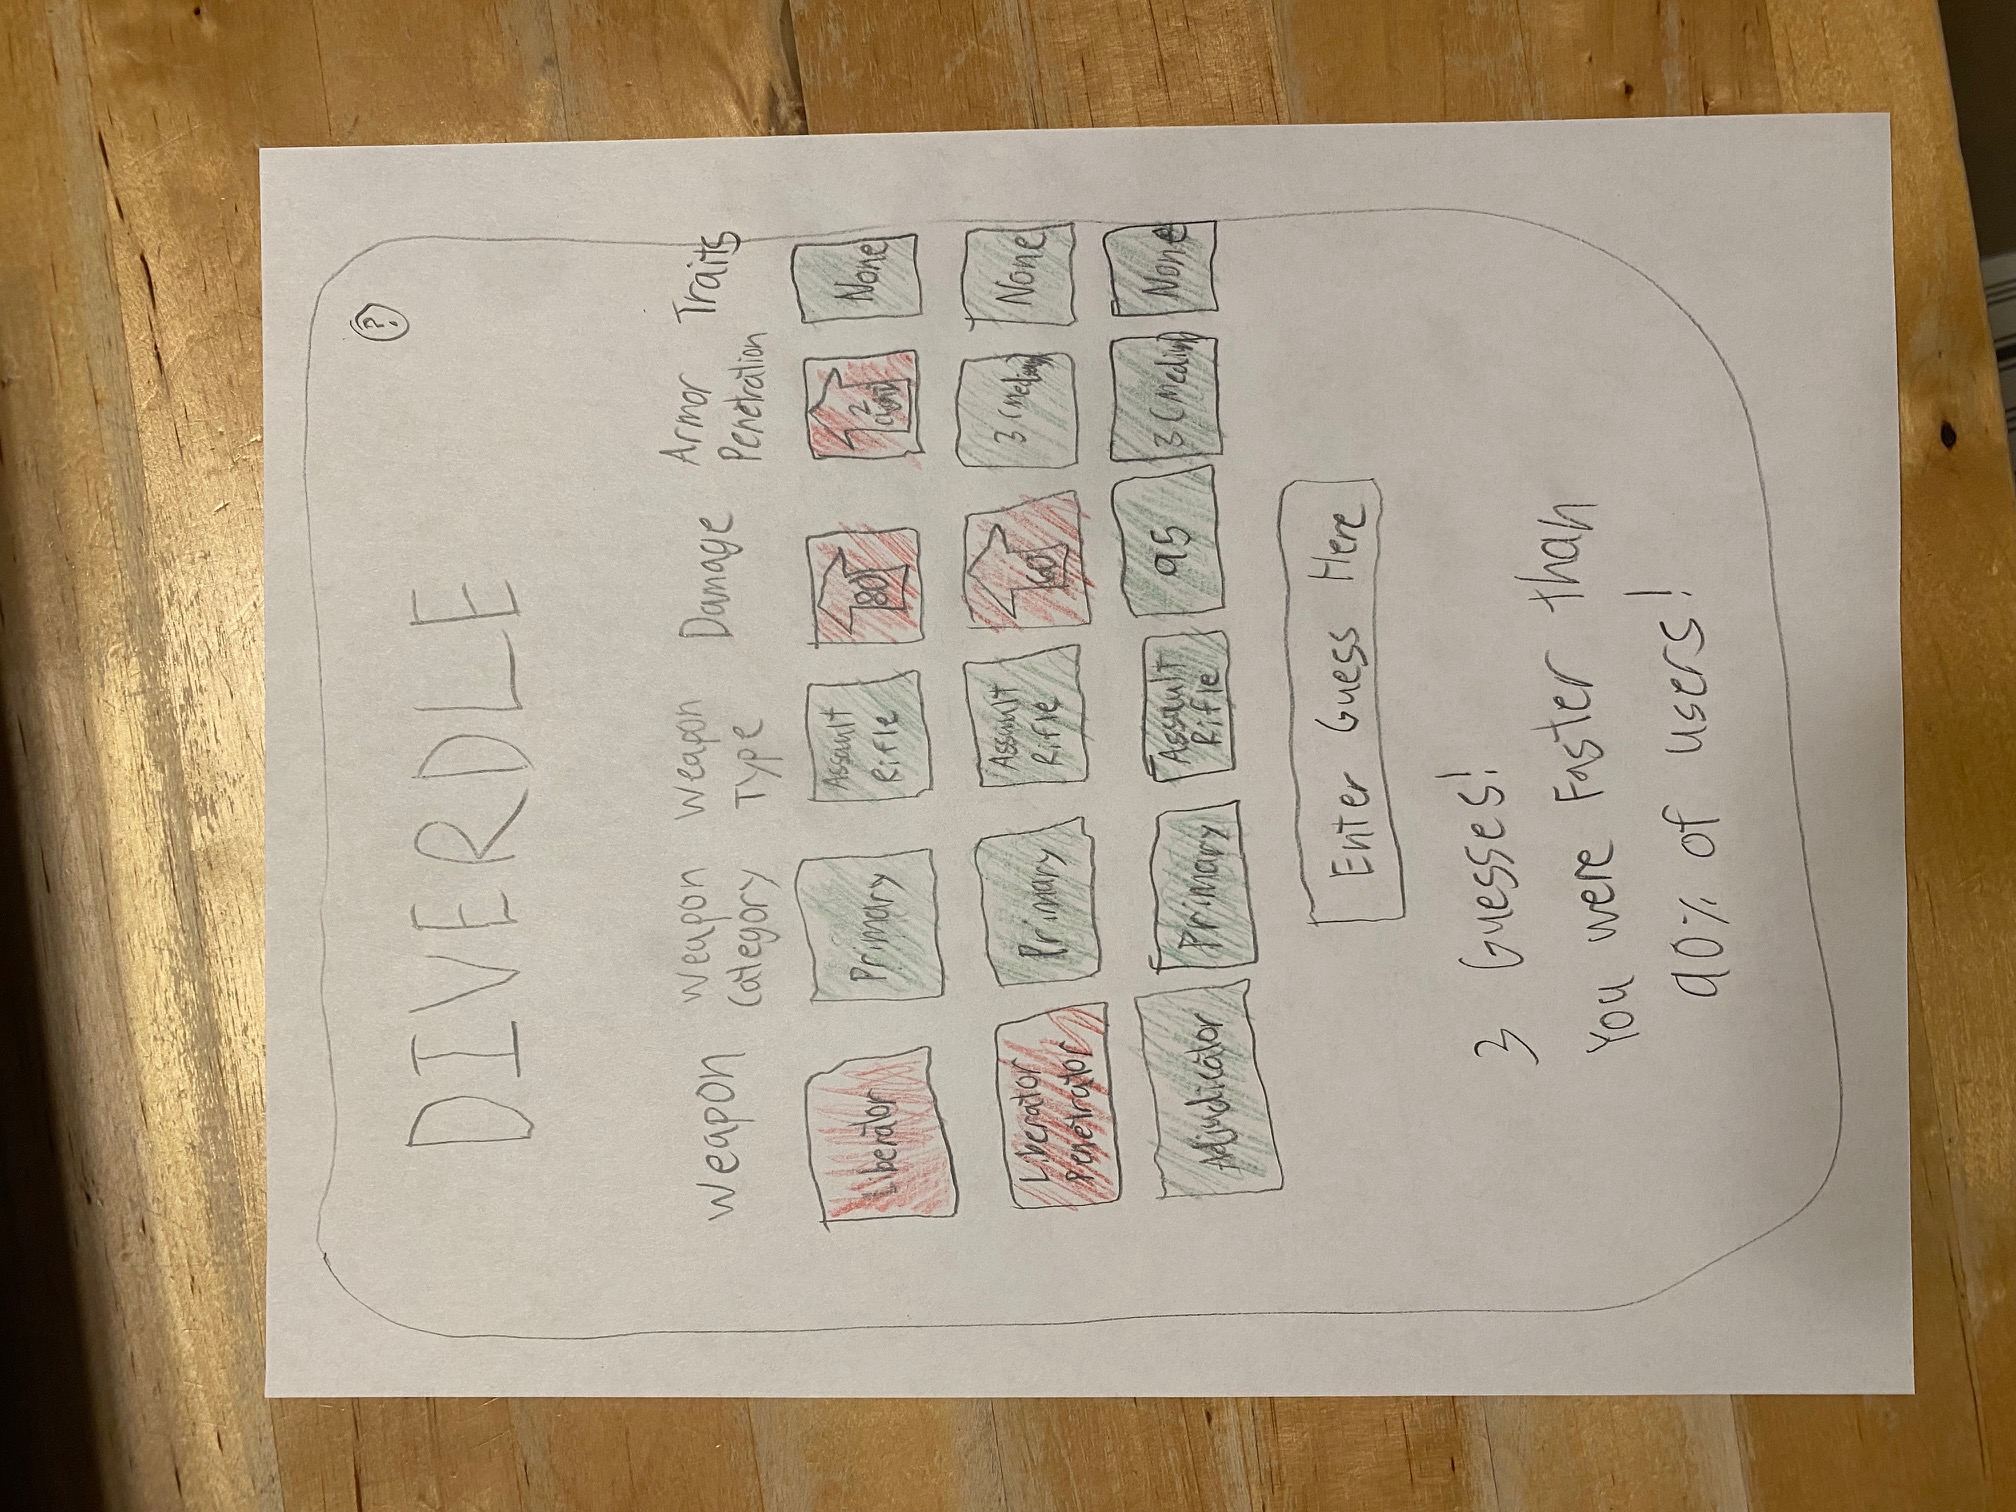 ?
DIVERDLE
Weapon
Weapon
Category
Weapon
Type
Damage
Armor
Penetration
Traits
Liberator
Primary
Assault
Rifle
80
2
None
Liberator
Penetrator
Primary
Assault
Rifle
60
3 (Medium)
None
Adjudicator
Primary
Assault
Rifle
95
3 (Medium)
None
Enter Guess Here
3 Guesses!
You were Faster than
90% of users!